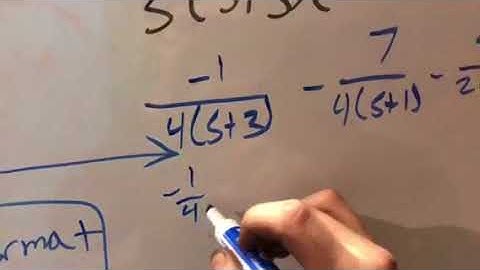 -1/4(s+3) - 7/4(s+1) -
-1/4
rmat